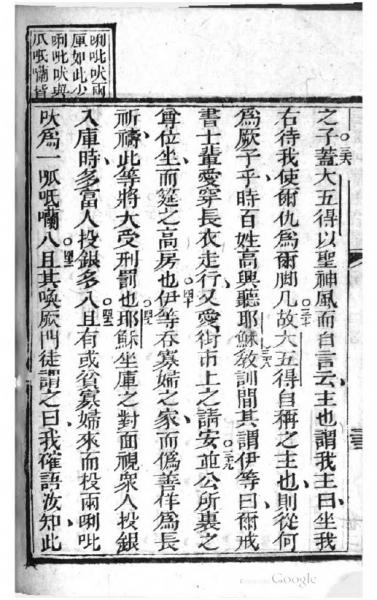 唎吡吠兩
厘如此少
唎吡吠與
呱呧嘯皆
之子蓋大五得以聖神風而自言云主也謂我主曰坐我
右待我使爾仇為爾脚几故大五得自稱之主也則從何
為厥子乎時百姓高興聽耶穌教訓間其謂伊等曰爾戒
書士輩愛穿長衣走行又愛街市上之請安並公所裏之
尊位坐而筵之高房也伊等吞寡婦之家而偽善佯為長
祈禱此等將大受刑罰也耶穌坐庫之對面視眾人投銀
入庫時多富人投銀多且有或貧寡婦來而投兩唎吡
吠為一呱呧嘯且其喚厥門徒謂之曰我確語汝知此
Google